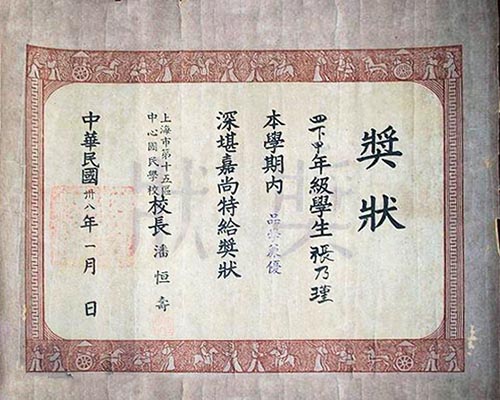 獎狀
四下甲年級學生張乃瑾
本學期內品學兼優
深堪嘉尚特給獎狀
上海市第十五區
中心國民學校
校長潘恒壽
中華民國卅八年一月 日